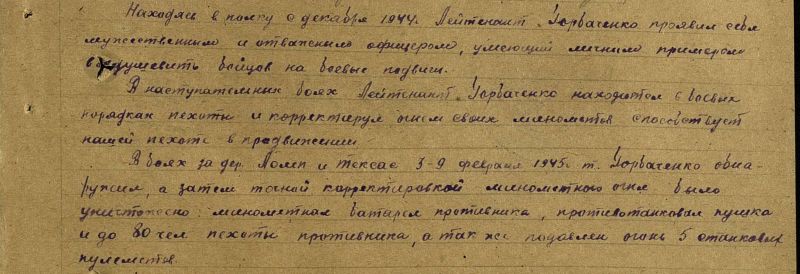 Находясь в полку с декабря 1944г. Лейтенант Горбаченко проявил себя
мужественным и отважным офицером, умеющий личным примером
воодушевить бойцов на боевые подвиги.
В наступательных боях Лейтенант Горбаченко находится в боевых
порядках пехоты и корректируя огнем своих минометов способствует
нашей пехоте в продвижении.
В боях за дер. и 3-9 февраля 1945г. т. Горбаченко обна-
ружил, а затем точной корректировкой минометного огня было
уничтожено: минометная батарея противника, противотанковая пушка
и до 80 чел пехоты противника, а так же подавлен огонь 5 станковых
пулеметов.